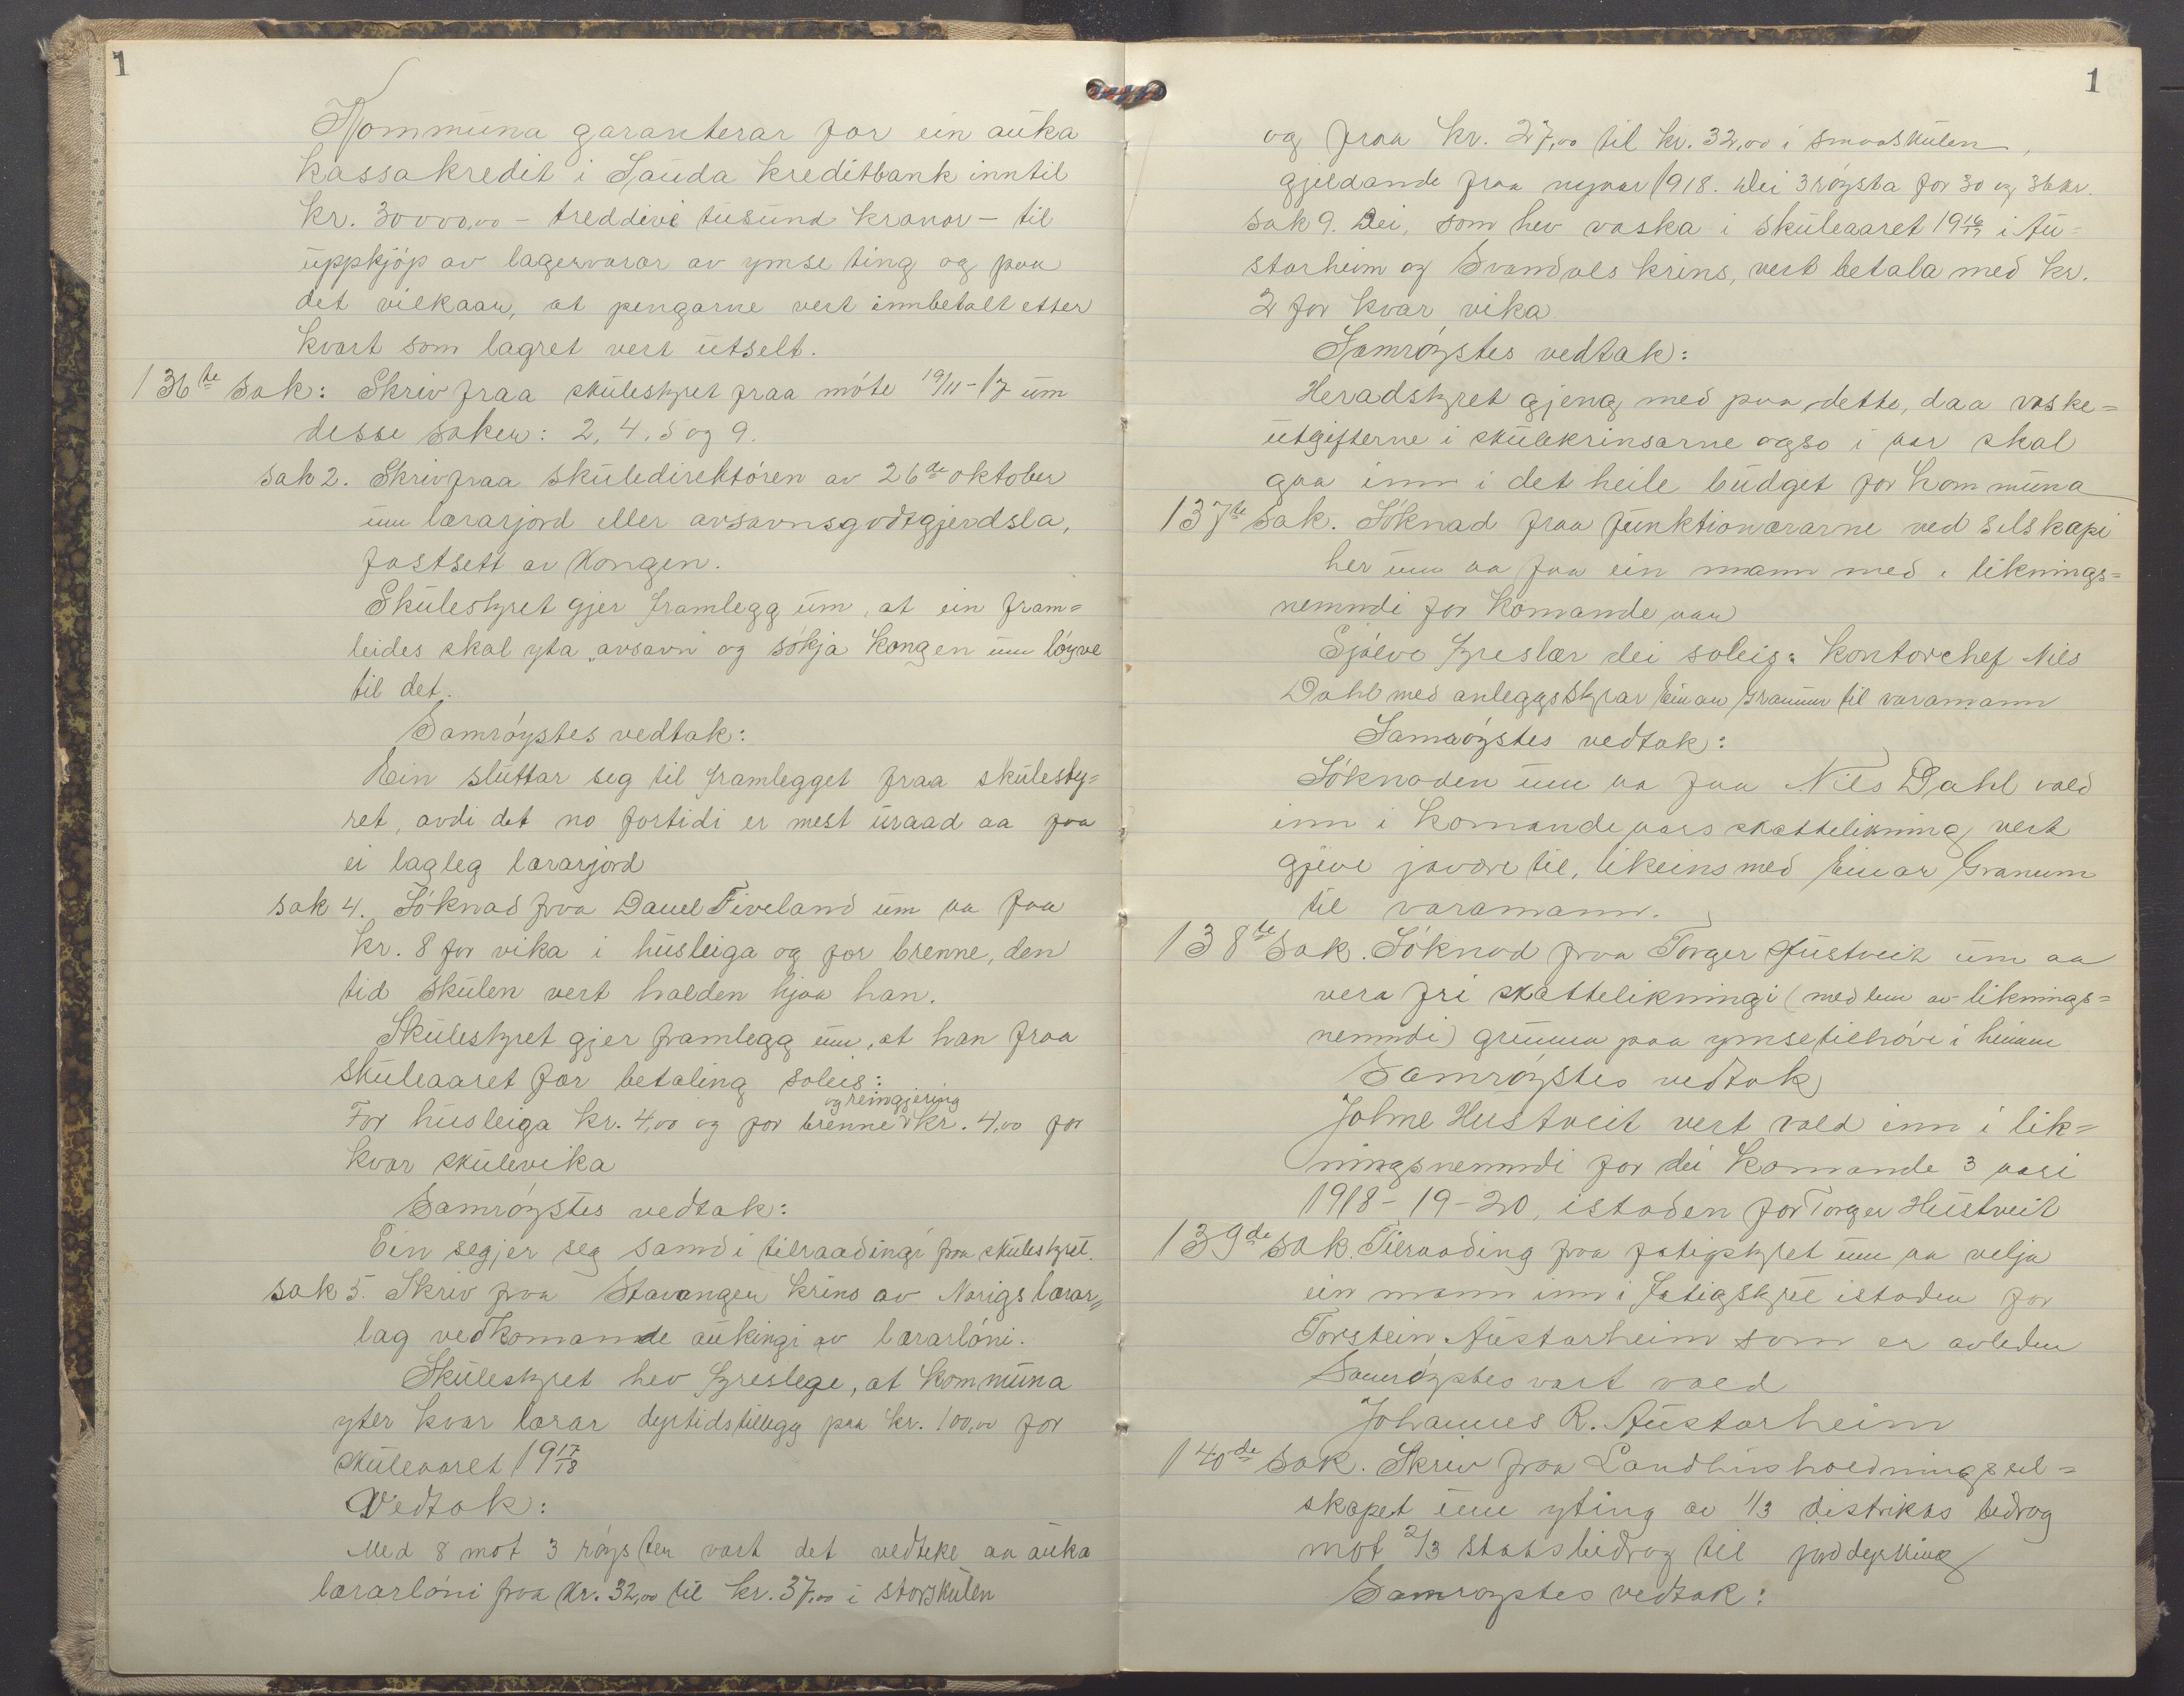 1
Kommuna garanterar for ein auka
kassakredit i Sauda kreditbank inntil
kr. 30000,00 - treddive tusund kronor - til
uppkjöp av lagervaror av ymse ting og paa
det vilkaar, at pengarne vert innbetalt etter
kvart som lagret vert utselt.
136te sak: Skriv fraa skulestyret fraa möte 19/11-17 um
desse saker: 2, 4, 5 og 9.
sak 2. Skriv fraa skuledirektören av 26de oktober
um lærarjord eller avsavnsgodtgjerdsla,
fastsett av Kongen.
Skulestyret gjer framlegg um, at ein fram=
leides skal yta avsavn og sökja Kongen um löyve
til det.
Samröystes vedtak:
Ein sluttar seg til framlegget fraa skulesty=
ret, avdi det no fortidi er mest uraad aa faa
ei lagleg lærarjord
sak 4. Söknad fraa Daniel Tiveland um aa faa
kr. 8 for vika i husleiga og for brenne, den
tid skulen vert halden hjaa han.
Skulestyret gjer framlegg um, at han fraa
skuleaaret fær betaling soleis:
og reingjering
For husleiga kr. 4,00 og for brenne kr. 4,00 for
kvar skulevika
Samröystes vedtak:
Ein segjer seg samd i tilraadingi fraa skulestyret.
sak 5. Skriv fraa Stavanger krins av Norigs lærar„
lag vedkomande aukingi av lærarlöni.
Skulestyret hev fyreslege, at kommuna
yter kvar lærar dyrtidstillegg paa kr. 100,00 for
skuleaaret 1917/18
Vedtak:
Med 8 mot 3 röyster vart det vedteke aa auka
lærarlöni fraa kr. 32,00 til kr. 37,00 i storskulen
1
og fraa kr. 27,00 til kr. 32,00 i smaaskulen,
gjeldande fraa nyaar 1918. Dei 3 röysta for 30 og 36 kr.
sak 9. Dei, som hev vaska i skuleaaret 1916/17 i Au=
starheim og Svandals krins, vert betala med kr.
2 for kvar vika
Samröystes vedtak:
Heradstyret gjeng med paa dette, daa vaske=
utgifterne i skulekrinsarne ogso i aar skal
gaa inn i det heile budget for kommuna
137de sak. Söknad fraa funktionærarne ved selskapi
her um aa faa ein mann med i liknings=
nemndi for komande aar
Sjölve fyreslær dei soleis: kontorchef Nils
Dahl med anleggsstyrar Einar Granum til varamann
Samröystes vedtak:
Söknaden um aa faa Nils Dahl vald
inn i komande aars skattelikning vert
gjeve javöre til, likeins med Einar Granum
til varamann.
138de sak. Söknad fraa Torger Hustveit um aa
vera fri skattelikningi (medlem av liknings=
nemndi) grunna paa ymse tilhöve i heimen
Samröystes vedtak
Johne Hustveit vert vald inn i lik=
ningsnemndi for dei komande 3 aari
1918-19-20, istaden for Torger Hustveit
139de sak. Tilraading fraa fatigstyret um aa velja
ein mann inn i fatigstyret istaden for
Torstein Austarheim som er avliden
Samröystes vart vald
Johannes R. Austarheim
140de sak. Skriv fraa Landhushaldningssel=
skapet um yting av 1/3 distrikts bidrag
mot 2/3 statsbidrag til jorddyrking
Samröystes vedtak: